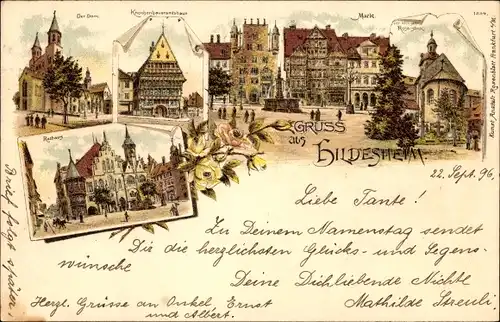 Der Dom.
Knochenhaueramtshaus
Markt.
Rosenstock.
Rathaus.
GRUSS
aus
HILDESHEIM.
22. Sept. 96.
Liebe Tante!
Zu Deinem Namenstag sendet
Dir die herzlichsten Glücks- und Segens-
wünsche
Deine Dichliebende Nichte
Mathilde Streuli.
Herzl. Grüsse an Onkel, Ernst
und Albert.
Brief folgt später.